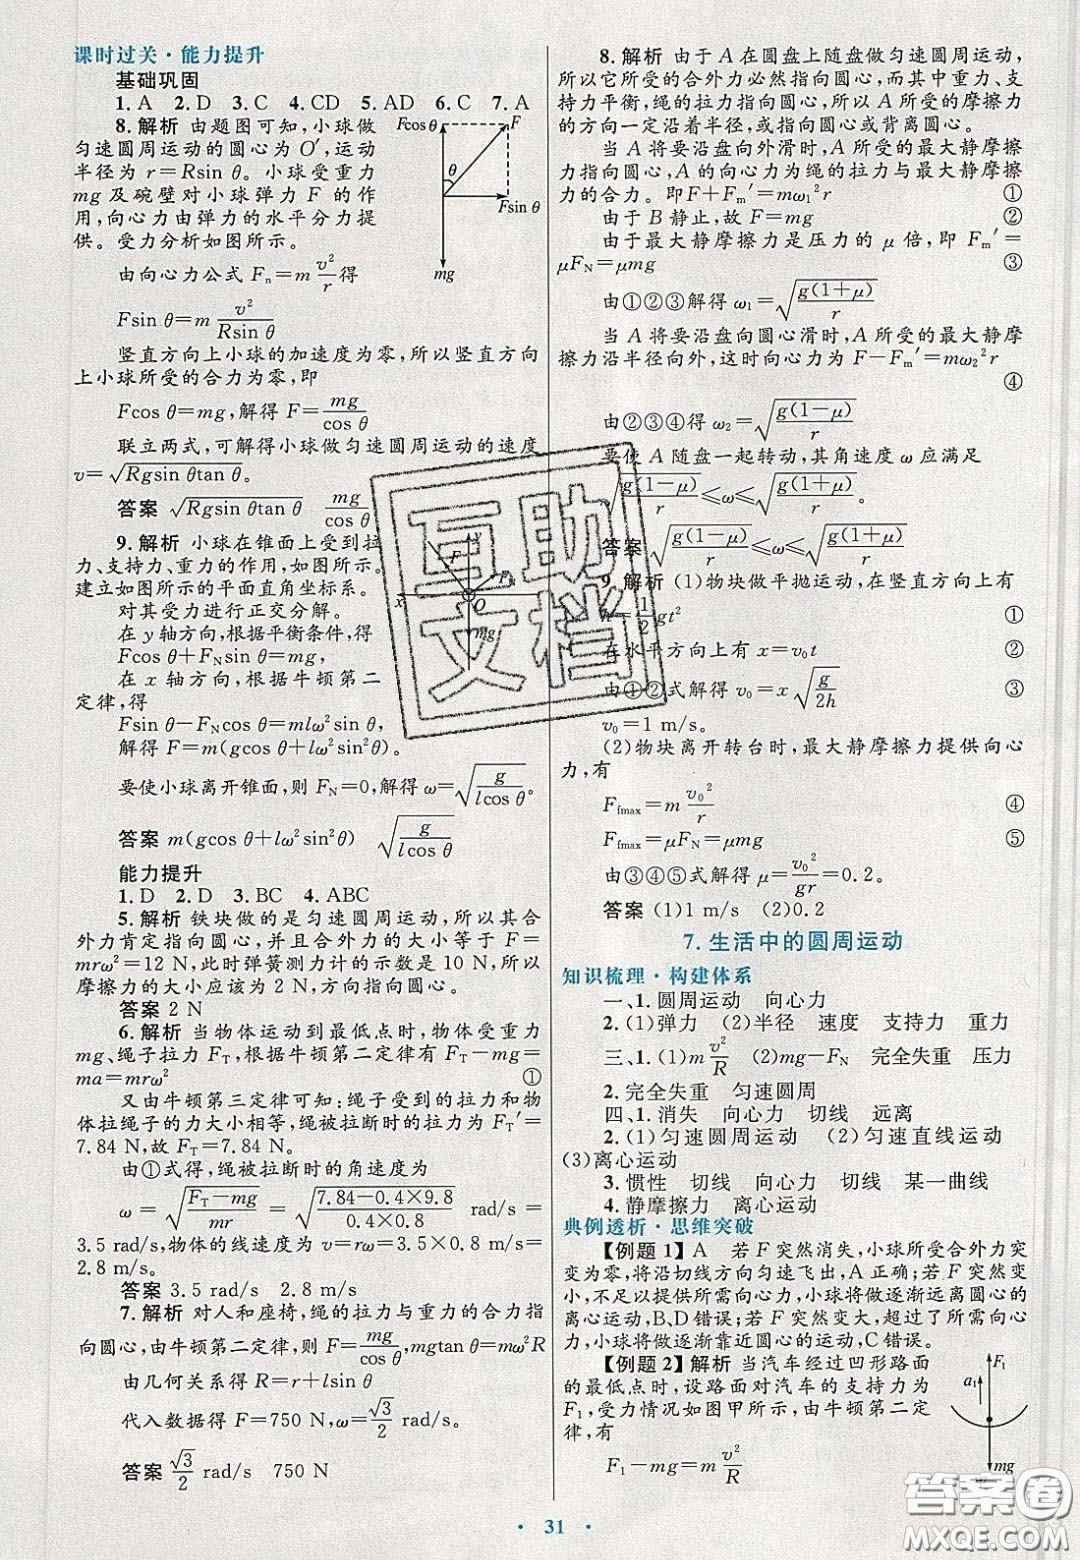 课时过关·能力提升
基础巩固
1. A 2. D 3. C 4. CD 5. AD 6. C 7. A
8. 解析 由题图可知,小球做
匀速圆周运动的圆心为 O′,运动
半径为 r=Rsin θ。小球受重力
mg 及碗壁对小球弹力 F 的作
用,向心力由弹力的水平分力提
供。受力分析如图所示。
Fcos θ F
θ
Fsin θ
mg
由向心力公式 Fₙ=m v²/r 得
Fsin θ=m v²/(Rsin θ)
竖直方向上小球的加速度为零,所以竖直方向
上小球所受的合力为零,即
Fcos θ=mg,解得 F=mg/cos θ
联立两式,可解得小球做匀速圆周运动的速度
v=√(Rgsin θtan θ)。
答案 √(Rgsin θtan θ) mg/cos θ
9. 解析 小球在锥面上受到拉
力、支持力、重力的作用,如图所示。
建立如图所示的平面直角坐标系。
对其受力进行正交分解。
在 y 轴方向,根据平衡条件,得
Fcos θ+F_N sin θ=mg,
在 x 轴方向,根据牛顿第二
定律,得
x O
mg
Fsin θ−F_N cos θ=mlω²sin θ,
解得 F=m(gcos θ+lω²sin²θ)
要使小球离开锥面,则 F_N=0,解得 ω=√(g/(lcos θ))。
答案 m(gcos θ+lω²sin²θ) √(g/(lcos θ))
能力提升
1. D 2. D 3. BC 4. ABC
5. 解析 铁块做的是匀速圆周运动,所以其合
外力肯定指向圆心,并且合外力的大小等于 F=
mrω²=12 N,此时弹簧测力计的示数是 10 N,所以
摩擦力的大小应该为 2 N,方向指向圆心。
答案 2 N
6. 解析 当物体运动到最低点时,物体受重力
mg、绳子拉力 F_T,根据牛顿第二定律有 F_T−mg=
ma=mrω² ①
又由牛顿第三定律可知:绳子受到的拉力和物
体拉绳子的力大小相等,绳被拉断时的拉力 F_T′=
7.84 N,故 F_T=7.84 N。
由①式得:绳被拉断时的角速度为
ω=√((F_T−mg)/mr)=√((7.84−0.4×9.8)/(0.4×0.8))=
3.5 rad/s,物体的线速度为 v=rω=3.5×0.8 m/s=
2.8 m/s。
答案 3.5 rad/s 2.8 m/s
7. 解析 对人和座椅,绳的拉力与重力的合力指
向圆心,由牛顿第二定律,则 F=mg/cos θ,mgtan θ=mω²R
由几何关系得 R=r+lsin θ
代入数据得 F=750 N,ω=√3/2 rad/s。
答案 √3/2 rad/s 750 N
8. 解析 由于 A 在圆盘上随盘做匀速圆周运动,
所以它所受的合外力必然指向圆心,而其中重力、支
持力平衡,绳的拉力指向圆心,所以 A 所受的摩擦力
的方向一定沿着半径,或指向圆心,或背离圆心。
当 A 将要沿盘向外滑时,A 所受的最大静摩擦
力指向圆心,A 的向心力为绳的拉力与最大静摩擦
力的合力。即 F+Fₘ′=mω₁²r ①
由于 B 静止,故 F=mg ②
由于最大静摩擦力是压力的 μ 倍,即 Fₘ′=
μF_N=μmg ③
由①②③解得 ω₁=√(g(1+μ)/r)
当 A 将要沿盘向圆心滑时,A 所受的最大静摩
擦力沿半径向外,这时向心力为 F−Fₘ′=mω₂²r
④
由②③④得 ω₂=√(g(1−μ)/r)
要使 A 随盘一起转动,其角速度 ω 应满足
√(g(1−μ)/r)≤ω≤√(g(1+μ)/r)。
答案 √(g(1−μ)/r)≤ω≤√(g(1+μ)/r)
9. 解析 (1)物块做平抛运动,在竖直方向上有
h=1/2 gt² ①
在水平方向上有 x=v₀t ②
由①②式解得 v₀=x√(g/2h) ③
v₀=1 m/s。
(2)物块离开转台时,最大静摩擦力提供向心
力,有
F_fmax=m v₀²/r ④
F_fmax=μF_N=μmg ⑤
由③④⑤式解得 μ=v₀²/gr=0.2。
答案 (1)1 m/s (2)0.2
7. 生活中的圆周运动
知识梳理·构建体系
一、1. 圆周运动 向心力
2. (1)弹力 (2)半径 速度 支持力 重力
三、1. (1)m v²/R (2)mg−F_N 完全失重 压力
2. 完全失重 匀速圆周
四、1. 消失 向心力 切线 远离
2. (1)匀速圆周运动 (2)匀速直线运动
(3)离心运动
3. 惯性 切线 向心力 切线 某一曲线
4. 静摩擦力 离心运动
典例透析·思维突破
【例题 1】 A 若 F 突然消失,小球所受合外力突
变为零,将沿切线方向匀速飞出,A 正确;若 F 突然变
小,不足以提供所需向心力,小球将做逐渐远离圆心的
离心运动,B、D 错误;若 F 突然变大,超过了所需向心
力,小球将做逐渐靠近圆心的运动,C 错误。
【例题 2】 解析 当汽车经过凹形路面
的最低点时,设路面对汽车的支持力为
F₁,受力情况如图甲所示,由牛顿第二定
律,有
F₁−mg=m v²/R
F₁
a₁
mg
甲
互助
文档
31
答案圈
MXQE.COM